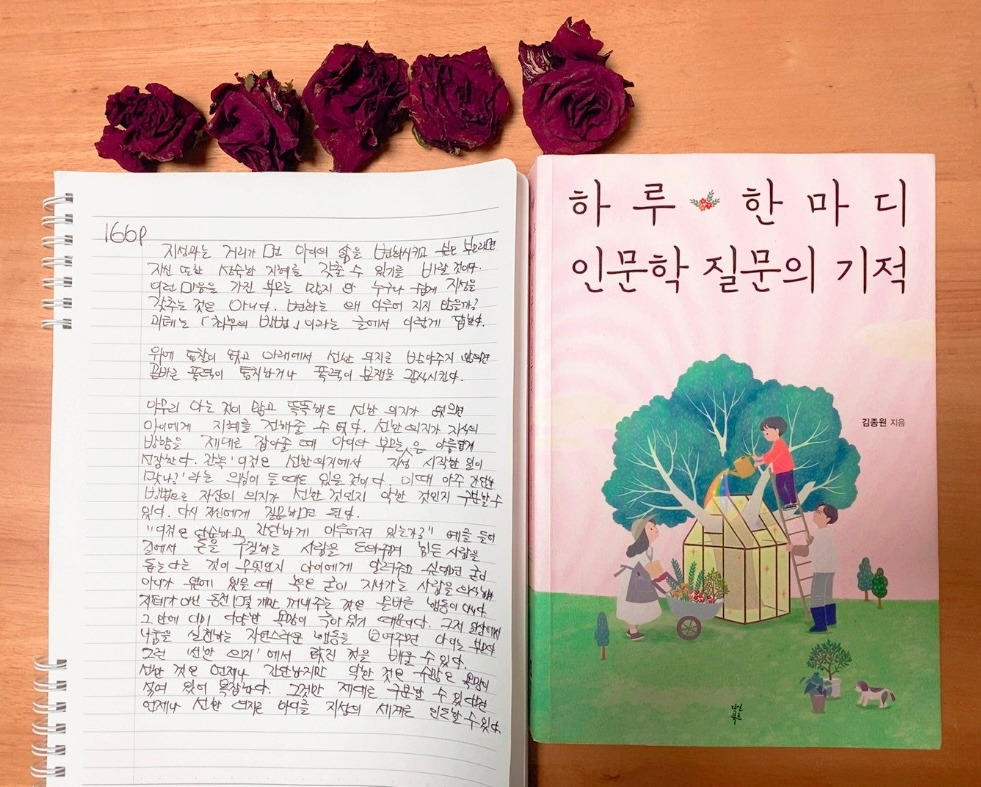 166p
지성과는 거리가 먼 아이의 삶을 변화시키고 싶은 부모라면
자신 또한 상당한 지혜를 갖출 수 있기를 바랄 것이다.
이런 마음을 가진 부모는 많지 만 누구나 쉽게 지성을
갖추는 것은 아니다. 변화는 왜 이루어 지지 않을까?
괴테는 「최우의 방법」이라는 글에서 이렇게 답한다.
위에 통찰이 없고 아래에서 선한 의지로 받아주지 않으면
곧바로 폭력이 통치하거나 폭력이 분쟁을 감식시킨다.
아무리 아는 것이 많고 똑똑해도 선한 의지가 없으면
아이에게 지혜를 전해줄 수 없다. 선한 의지가 지성의
방향을 제대로 잡아줄 때 아이와 부모는 아름답게
성장한다. 간혹 '이것은 선한 의지에서 시작한 일이
맞나?'라는 의심이 들 때도 있을 것이다. 이때 아주 간단한
방법으로 자신의 의지가 선한 것인지 악한 것인지 구분할 수
있다. 다시 자신에게 질문하면 된다.
"이것은 단순하고 간단하게 이루어져 있는가?" 예를 들어
길에서 돈을 구걸하는 사람을 도와줘서 힘든 사람을
돕는다는 것이 무엇인지 아이에게 알려주고 싶다면 굳이
아이가 옆에 있을 때 혹은 굳이 지나가는 사람을 의식하며
동전 꺼내주는 것은 올바른 행동이 아니다.
그 안에 이미 다양한 욕망이 녹아 있기 때문이다. 그저 일상에서
나눔을 실천하는 자연스러운 행동을 보여주면 아이는 부모의
그런 '선한 의지'에서 멋진 것을 배울 수 있다.
선한 것은 언제나 간단하지만 악한 것은 수많은 욕망이
섞여 있어 복잡하다. 그것만 제대로 구분할 수 있다면
언제나 선한 의지로 아이를 지성의 세계로 인도할 수 있다.
하루 한마디
인문학 질문의 기적
김종원 지음
다산
북스